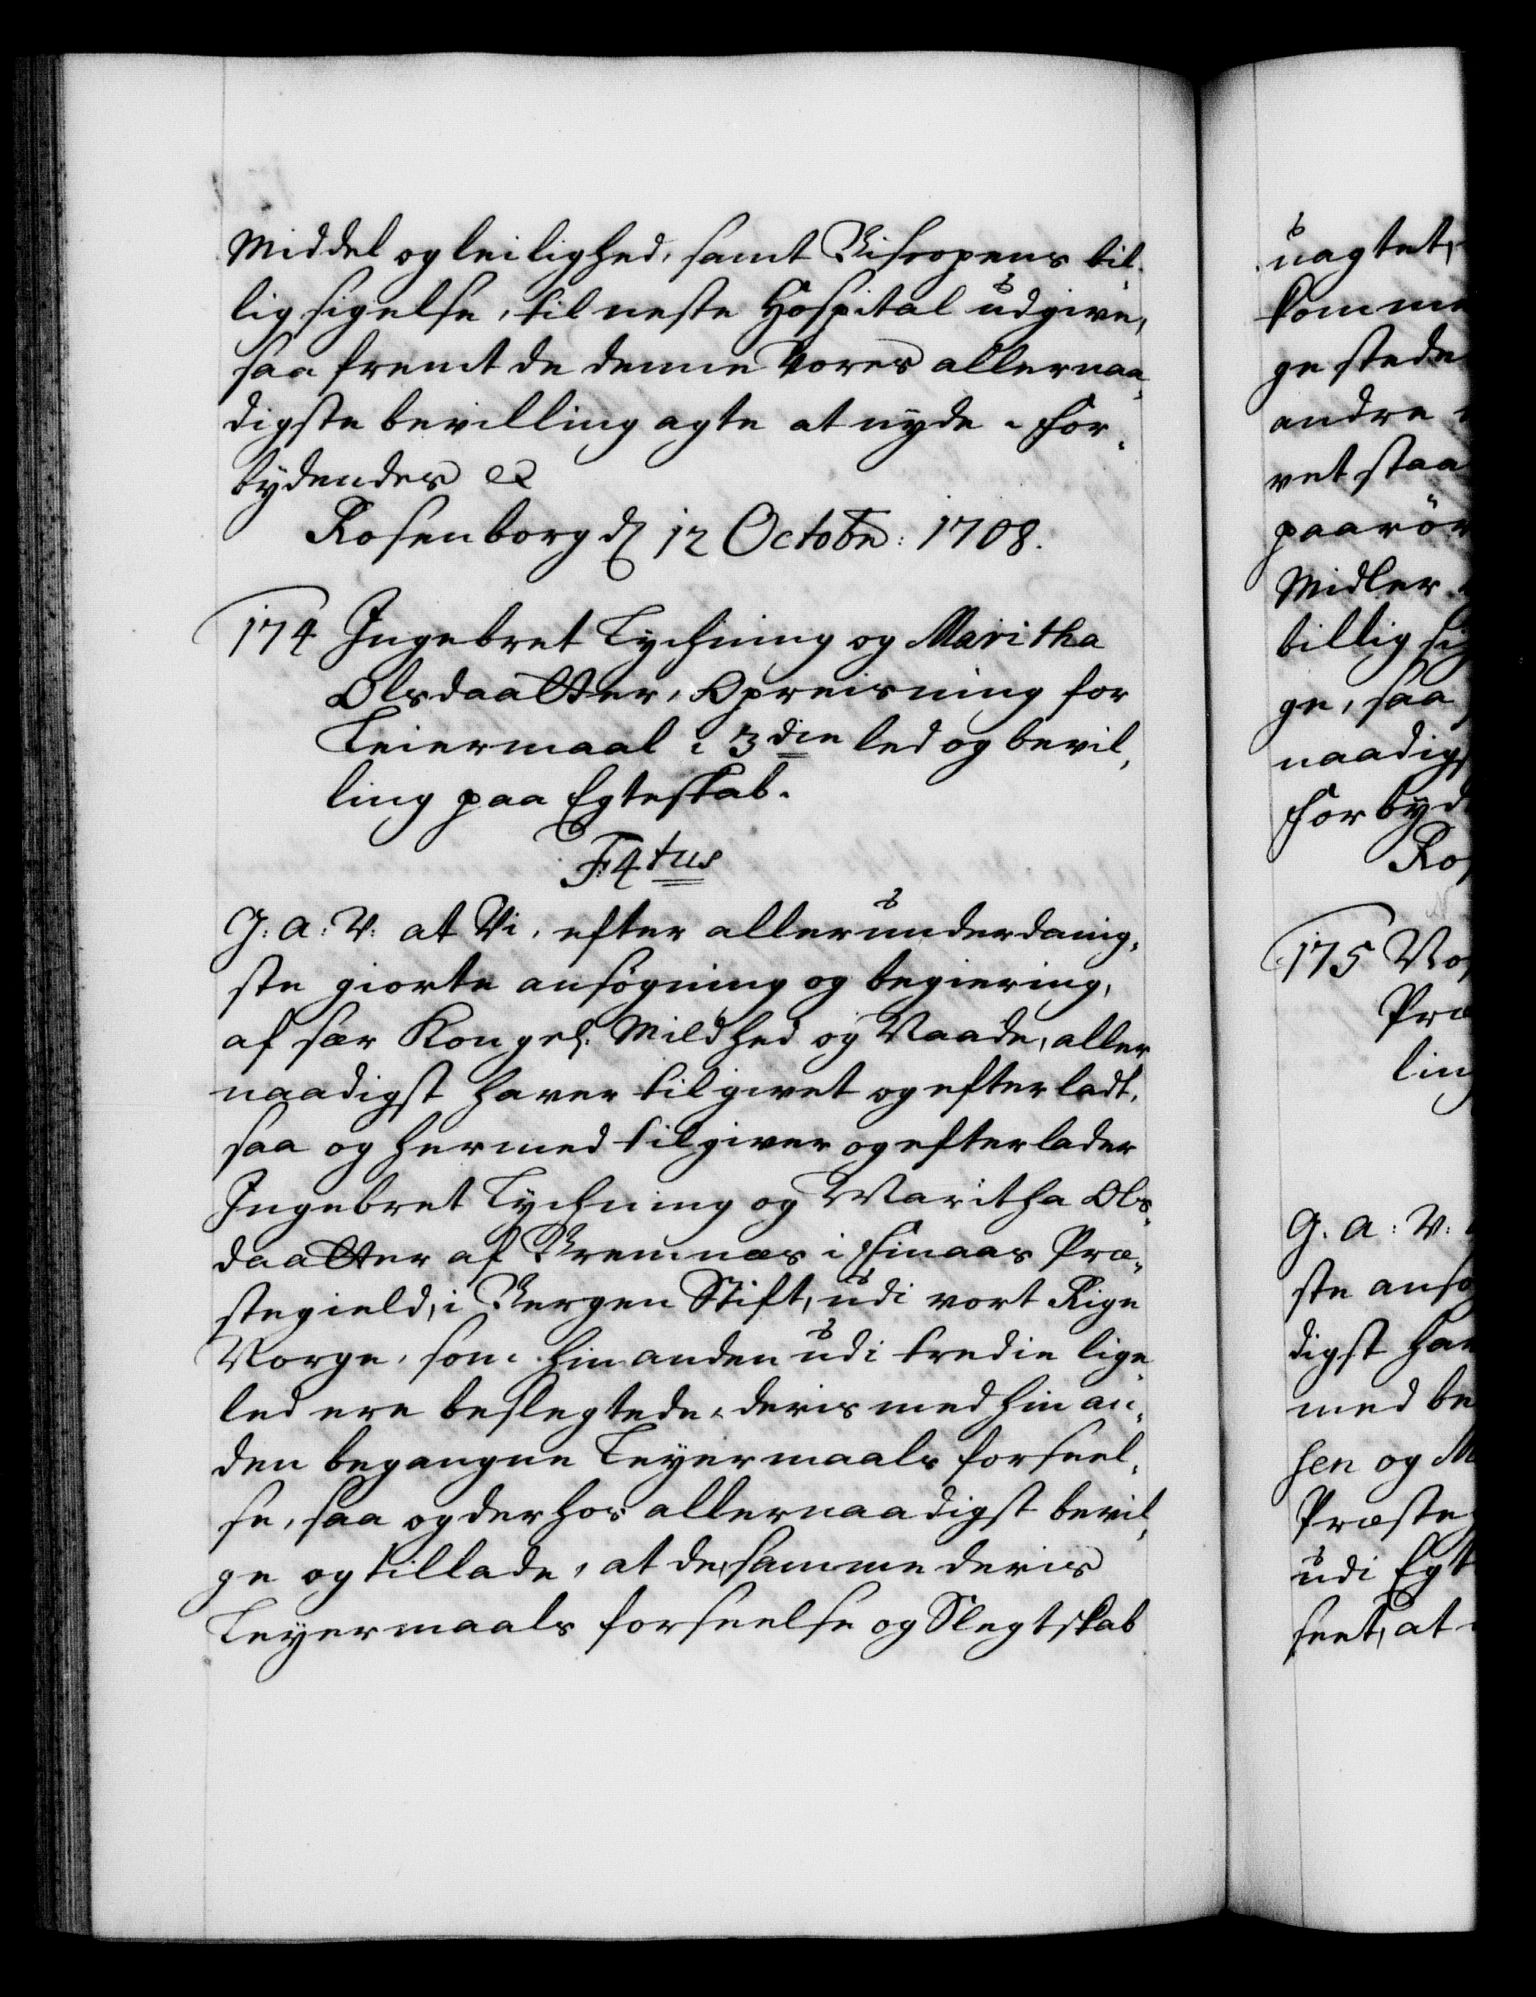 Middel og leilighed, samt Biscopens til¬
lig sigelse, til neste Hospital udgive,
saa fremt de denne Vores allernaa¬
digste bevilling agte at nyde. For¬
bydendes &c
Rosenborg d. 12 Octobr: 1708.
174 Ingebret Tychning og Maritha
Olsdaatter, Opreisning for
Leiermaal i 3die led og bevil¬
ling paa Egteskab.
F: 4tus
G. A: V: at Vi, efter allerunderdanig¬
ste giorte ansøgning og begiering,
af sær Kongel. Mildhed og Naade, aller
naadigst haver tilgivet og efterladt,
saa og hermed tilgiver og efterlader
Ingebret Tychning og Maritha Ols¬
daatter af Bremnæs i Finaas Præ¬
stegield, i Bergen Stift, udi vort Rige
Norge, som hinanden udi tredie lige
led ere beslegtede, deris med hinan¬
den begangne Leyermaals forseel¬
se, saa og derhos allernaadigst bevil¬
ge og tillade, at de, samme deris
Leyermaals forseelse og Slegtskab
uagtet,
komme
ge stede
andre
vet staa
paarör
Midler
billig sig
ge, saa
naadigs
Forbyd
Ros
175 Vos
Præ
ling
G. A: V:
ste ansø
digst hav
med be
sen og M
Præste
udi Egt
seet, at